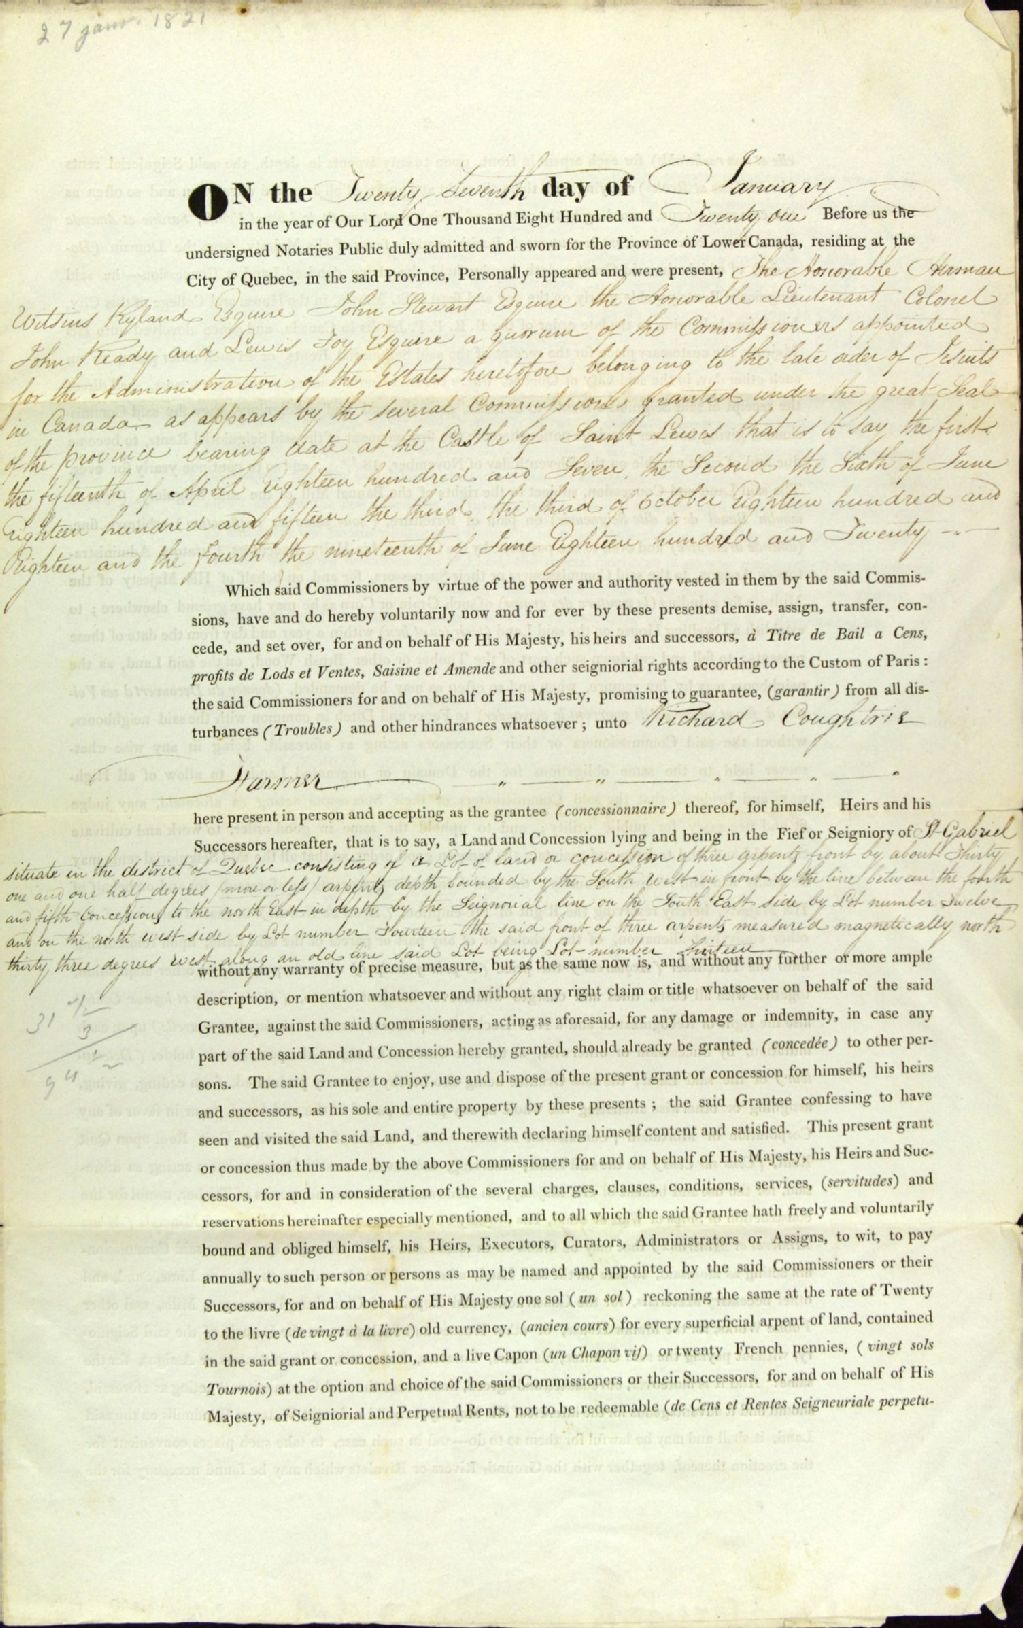 27 janv. 1821
ON the Twenty Seventh day of January
in the year of Our Lord One Thousand Eight Hundred and Twenty one Before us the
undersigned Notaries Public duly admitted and sworn for the Province of Lower Canada, residing at the
City of Quebec, in the said Province, Personally appeared and were present, The Honorable Herman
Witsius Ryland Esquire John Stewart Esquire the Honorable Lieutenant Colonel
John Ready and Lewis Foy Esquire a quorum of the Commissioners appointed
for the Administration of the Estates heretofore belonging to the late order of Jesuits
in Canada as appears by the several Commissions granted under the great Seal
of the province bearing date at the Castle of Saint Lewis that is to say the first
the fifteenth of April Eighteen hundred and Seven, the Second the Sixth of June
Eighteen hundred and fifteen the third, the third of October Eighteen hundred and
Eighteen and the fourth the nineteenth of June Eighteen hundred and Twenty
Which said Commissioners by virtue of the power and authority vested in them by the said Commis-
sions, have and do hereby voluntarily now and for ever by these presents demise, assign, transfer, con-
cede, and set over, for and on behalf of His Majesty, his heirs and successors, à Titre de Bail a Cens,
profits de Lods et Ventes, Saisine et Amende and other seigniorial rights according to the Custom of Paris :
the said Commissioners for and on behalf of His Majesty, promising to guarantee, (garantir) from all dis-
turbances (Troubles) and other hindrances whatsoever ; unto Richard Coughtrie
Farmer " " " " "
here present in person and accepting as the grantee (concessionnaire) thereof, for himself, Heirs and his
Successors hereafter, that is to say, a Land and Concession lying and being in the Fief or Seigniory of St Gabriel
situate in the district of Quebec consisting of a Lot of land or concession of three arpents front by about Thirty
one and one half degrees (more or less) arpents depth, bounded by the South West in front by the line between the fourth
and fifth Concessions to the north East in depth by the Seignorial line on the South East side by Lot number Twelve
and on the north west side by Lot number Fourteen the said front of three arpents measured magnetically north
thirty three degrees west along an old line said Lot being Lot number Thirteen
without any warranty of precise measure, but as the same now is, and without any further or more ample
description, or mention whatsoever and without any right claim or title whatsoever on behalf of the said
Grantee, against the said Commissioners, acting as aforesaid, for any damage or indemnity, in case any
part of the said Land and Concession hereby granted, should already be granted (concedée) to other per-
sons. The said Grantee to enjoy, use and dispose of the present grant or concession for himself, his heirs
and successors, as his sole and entire property by these presents ; the said Grantee confessing to have
seen and visited the said Land, and therewith declaring himself content and satisfied. This present grant
or concession thus made by the above Commissioners for and on behalf of His Majesty, his Heirs and Suc-
cessors, for and in consideration of the several charges, clauses, conditions, services, (servitudes) and
reservations hereinafter especially mentioned, and to all which the said Grantee hath freely and voluntarily
bound and obliged himself, his Heirs, Executors, Curators, Administrators or Assigns, to wit, to pay
annually to such person or persons as may be named and appointed by the said Commissioners or their
Successors, for and on behalf of His Majesty one sol (un sol) reckoning the same at the rate of Twenty
to the livre (de vingt à la livre) old currency, (ancien cours) for every superficial arpent of land, contained
in the said grant or concession, and a live Capon (un Chapon vif) or twenty French pennies, (vingt sols
Tournois) at the option and choice of the said Commissioners or their Successors, for and on behalf of His
Majesty, of Seigniorial and Perpetual Rents, not to be redeemable (de Cens et Rentes Seigneuriale perpetu-
31 1/2
3
94 1/2